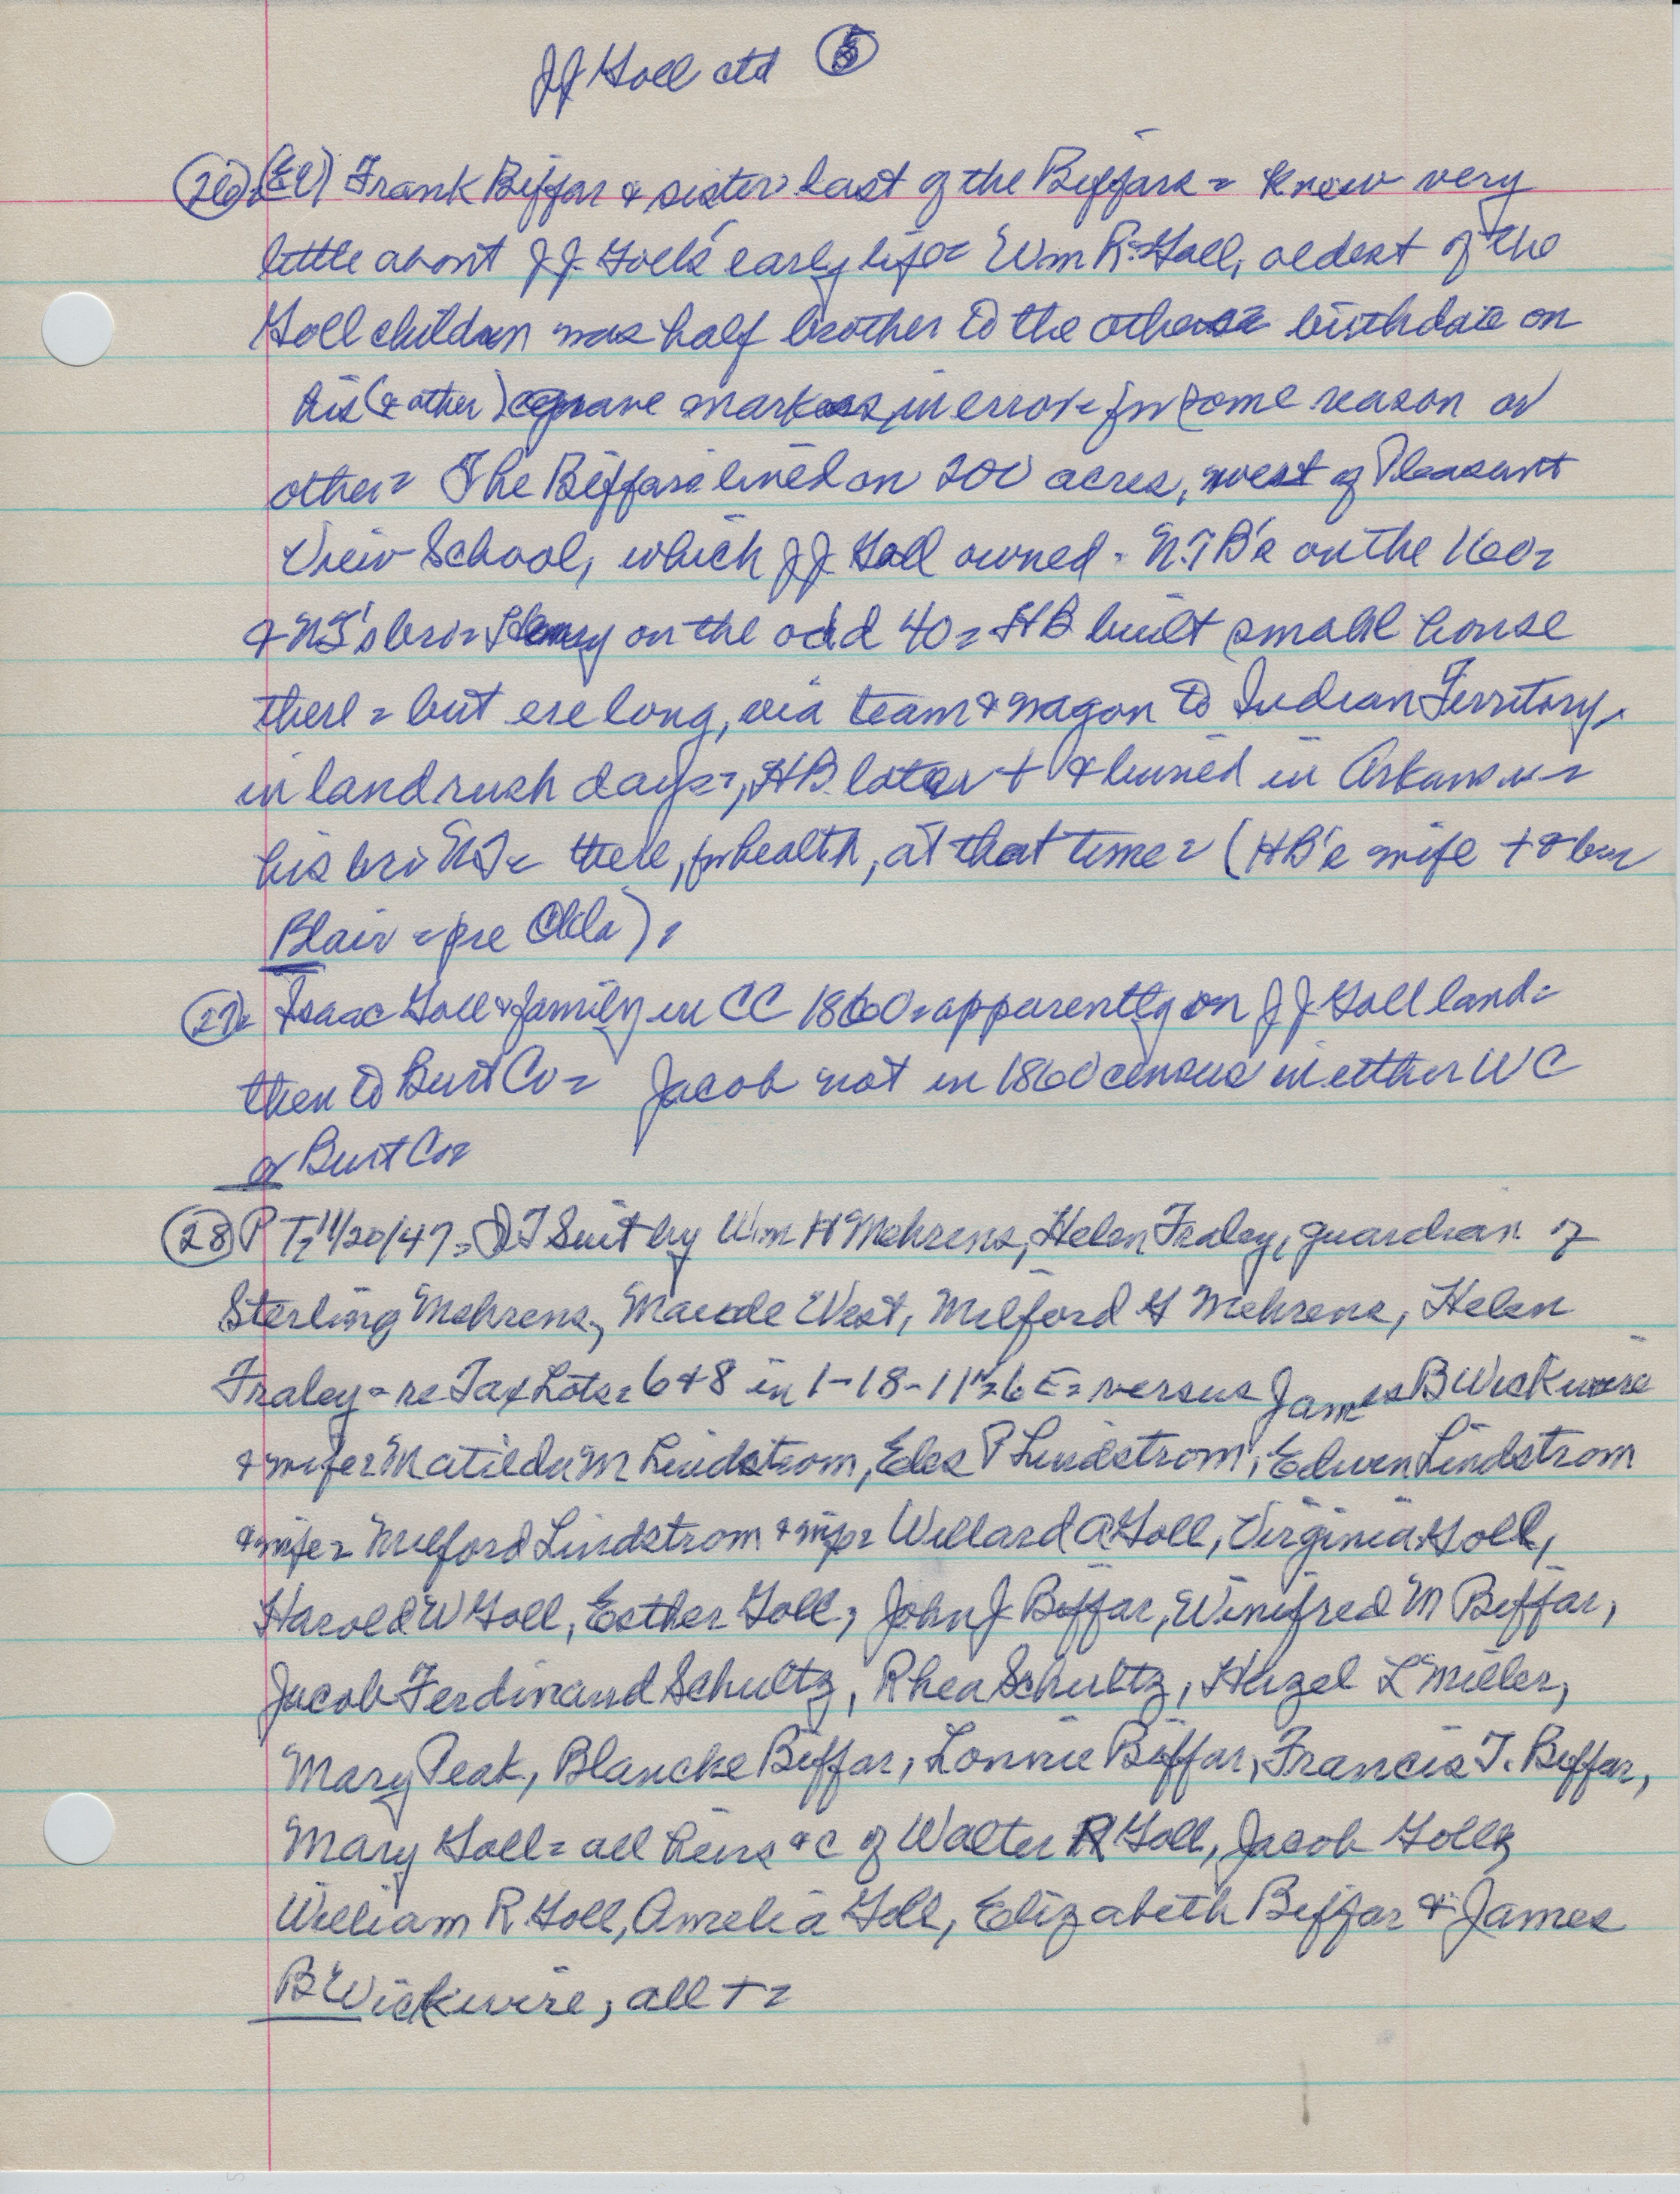 JJ Goll ctd 5
26= (El) Frank Biffar & sister last of the Biffars = know very
little about JJ. Goll's early life= Wm R. Goll, oldest of the
Goll children was half brother to the others= birthdate on
his (& other) grave markers, in error= for some reason or
other= The Biffars lived on 200 acres, west of Pleasant
View School, which JJ. Goll owned. N.T B's on the 160=
& NT's bro= Henry on the odd 40= HB built small house
there= but ere long, via team & wagon to Indian Territory,
in land rush days=, HB later + & buried in Arkansas=
his bro NT= there, for health, at that time= (HB's wife + & bur
Blair = pre Okla),
27= Isaac Goll & family in CC 1860= apparently on JJ Goll land=
then to Burt Co= Jacob not in 1860 census in either WC
or Burt Co=
28 P T, 11/20/47= QT Suit by Wm H Mehrens, Helen Fraley, guardian of
Sterling Mehrens, Maude West, Milford G Mehrens, Helen
Fraley= re Tax Lots= 6 & 8 in 1-18-11 E= versus James B Wickwire
& wife= Matilda M Lindstrom, P Lindstrom, Edwin Lindstrom
& wife= Milford Lindstrom & wife= Willard A Goll, Virginia Goll,
Harold W Goll, Esther Goll, John J Biffar, Winifred M Biffar,
Jacob Ferdinand Schultz, Rhea Schultz, Hazel L Miller,
Mary Peak, Blanche Biffar, Lonnie Biffar, Francis T. Biffar,
Mary Goll= all heirs &c of Walter R Goll, Jacob Goll,
William R Goll, Amelia Goll, Elizabeth Biffar & James
B Wickwire, all +=